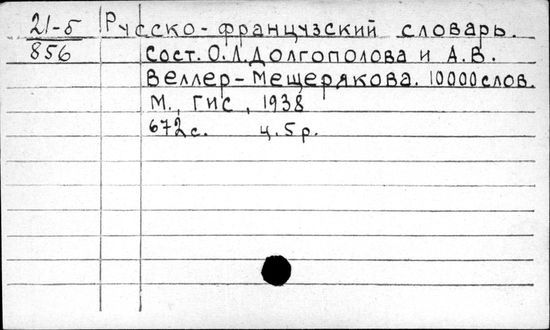 21-б Русско-французский словарь.
856 Сост. О.Л.Долгополова и А.В.
Веллер-Мещерякова. 10000слов.
М., Гис, 1938
672с. ц.5р.